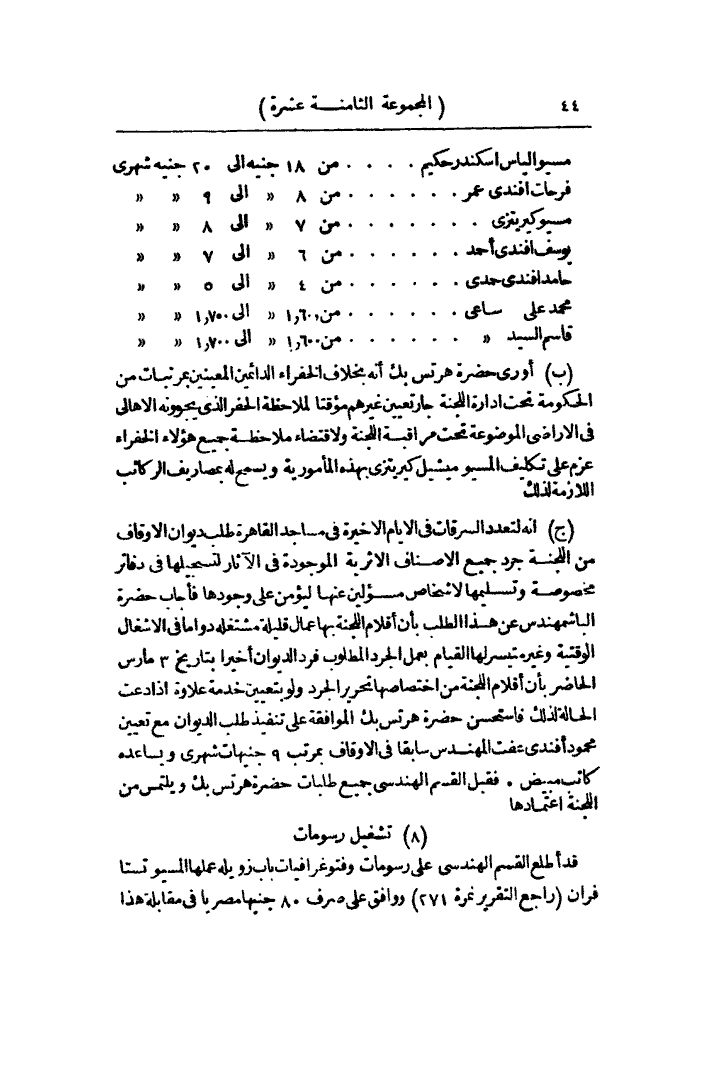 ٤٤ (المجموعة الثامنة عشرة)
مسيو الياس اسكندر حكيم . . . . من ١٨ جنيه الى ٢٠ جنيه شهرى
فرحات افندى عمر . . . . . . من ٨ » الى ٩ » »
مسيو كيريتزى . . . . . . من ٧ » الى ٨ » »
يوسف افندى أحمد . . . . . . من ٦ » الى ٧ » »
حامد افندى حمدى . . . . . . من ٤ » الى ٥ » »
محمد على ساعى . . . . . . من ١٫٦٠٠ » الى ١٫٧٠٠ » »
قاسم السيد » . . . . . . من ١٫٦٠٠ » الى ١٫٧٠٠ » »
(ب) أورى حضرة هرتس بك أنه بخلاف الخفراء الدائمين المعينين بمرتبات من
الحكومة تحت ادارة اللجنة جار تعيين غيرهم مؤقتا لملاحظة الحفر الذى يجرونه الاهالى
فى الاراضى الموضوعة تحت مراقبة اللجنة ولاقتضاء ملاحظة جميع هؤلاء الخفراء
عزم على تكليف المسيو ميشيل كيريتزى بهذه المأمورية ويسمح له بمصاريف الركائب
اللازمة لذلك
(ج) انه لتعدد السرقات فى الايام الاخيرة فى مساجد القاهرة طلب ديوان الاوقاف
من اللجنة جرد جميع الاصناف الاثرية الموجودة فى الآثار لتسجيلها فى دفاتر
مخصوصة وتسليمها لاشخاص مسؤلين عنها ليؤمن على وجودها فأجاب حضرة
الباشمهندس عن هذا الطلب بأن أقلام اللجنة بها عمال قليلة مشتغله دواما فى الاشغال
الوقتية وغير متيسر لها القيام بعمل الجرد المطلوب فرد الديوان أخيرا بتاريخ ٣ مارس
الحاضر بأن أقلام اللجنة من اختصاصها تحرير الجرد ولو بتعيين خدمة علاوة اذا دعت
الحالة لذلك فاستحسن حضرة هرتس بك الموافقة على تنفيذ طلب الديوان مع تعيين
محمود أفندى عفت المهندس سابقا فى الاوقاف بمرتب ٩ جنيهات شهرى ويساعده
كاتب مبيض . فقبل القسم الهندسى جميع طلبات حضرة هرتس بك ويلتمس من
اللجنة اعتمادها
(٨) تشغيل رسومات
قد أطلع القسم الهندسى على رسومات وفتوغرافيات باب زويله عملها المسيو تستا
فران (راجع التقرير نمرة ٢٧١) ووافق على صرف ٨٠ جنيها مصريا فى مقابلة هذا